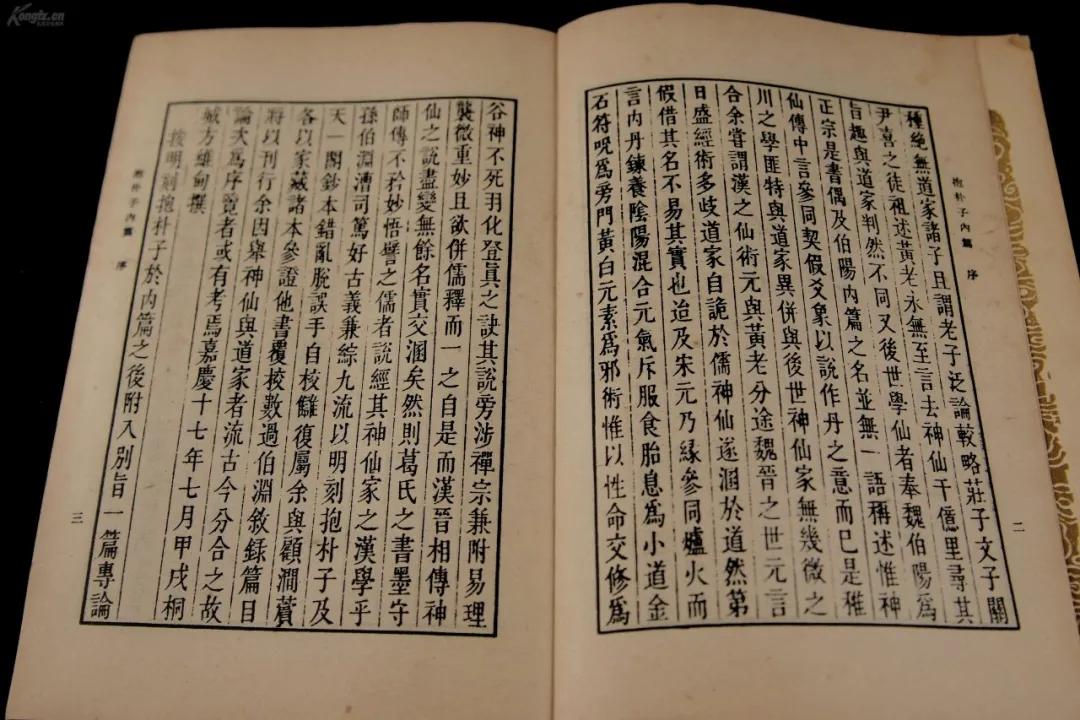 Kongfz.cn
抱朴子內篇 序
二
種絶無道家諸子且謂老子泛論較略莊子文子關
尹喜之徒祖述黃老永無至言去神仙千億里尋其
旨趣與道家判然不同又後世學仙者奉魏伯陽爲
正宗是書偶及伯陽內篇之名並無一語稱述惟神
仙傳中言參同契假爻象以說作丹之意而巳是稚
川之學匪特與道家異併與後世神仙家無幾微之
合余嘗謂漢之仙術元與黃老分途魏晉之世元言
日盛經術多歧道家自詭於儒神仙遂溷於道然第
假借其名不易其實也迨及宋元乃緣參同爐火而
言內丹鍊養陰陽混合元氣斥服食胎息爲小道金
石符呪爲旁門黃白元素爲邪術惟以性命交修爲
谷神不死羽化登真之訣其說旁涉禪宗兼附易理
襲微重妙且欲併儒釋而一之自是而漢晉相傳神
仙之說盡變無餘名實交溷矣然則葛氏之書墨守
師傳不矜妙悟譬之儒者說經其神仙家之漢學乎
孫伯淵漕司篤好古義兼綜九流以明刻抱朴子及
天一閣鈔本錯亂脫誤手自校讎復屬余與顧澗薲
各以家藏諸本參證他書覆校數過伯淵敘錄篇目
將以刊行余因舉神仙與道家者流古今分合之故
論次爲序覽者或有考焉嘉慶十七年七月甲戌桐
城方維甸撰
按明刻抱朴子於內篇之後附入別旨一篇專論
抱朴子內篇 序
三